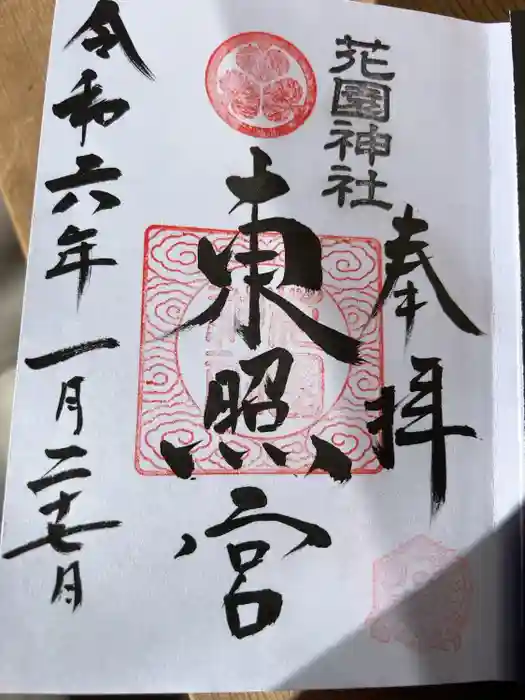 奉拝
花園神社
東照宮
令和六年一月二十七日